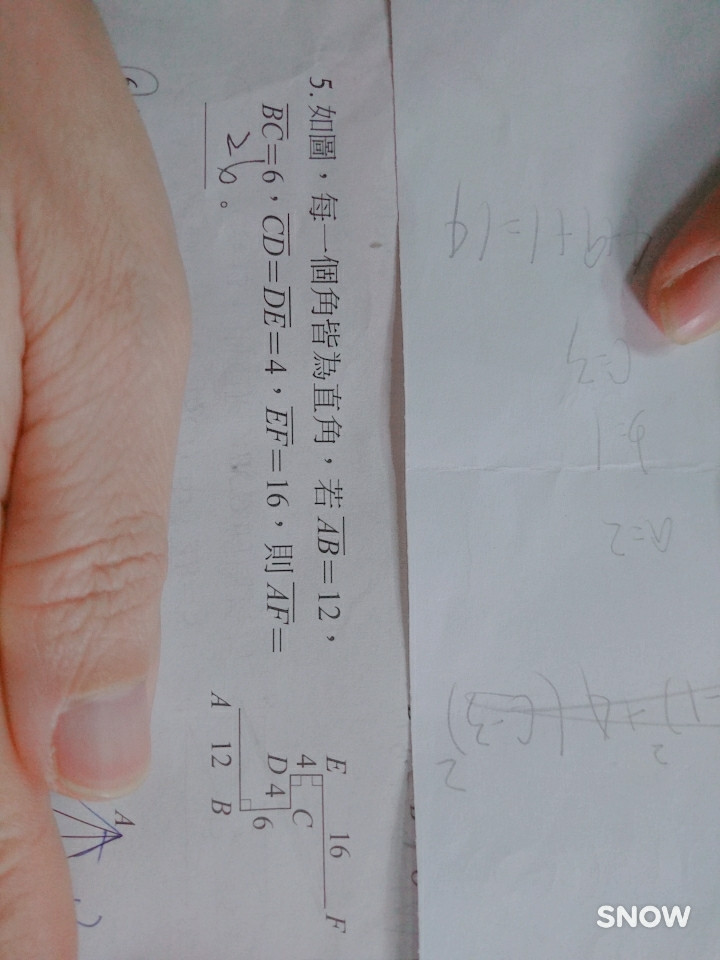 5. 如圖，每一個角皆為直角，若 AB=12，
BC=6，CD=DE=4，EF=16，則 AF=
26。
E 16 F
4
D 4 C
6
A 12 B
A
c=3
b=1
a=2
SNOW